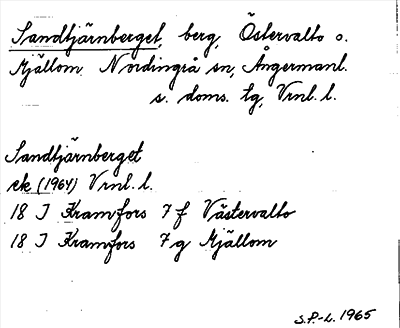 Sandtjärnberget, berg, Östervalto o.
Mjällom Nordingrå sn, Ångermanl.
s. doms. lg, Vrnl. l.
Sandtjärnberget
ek (1964) Vrnl. l.
18 J Kramfors 7 f Västervalto
18 J Kramfors 7 g Mjällom
S.P.-L. 1965